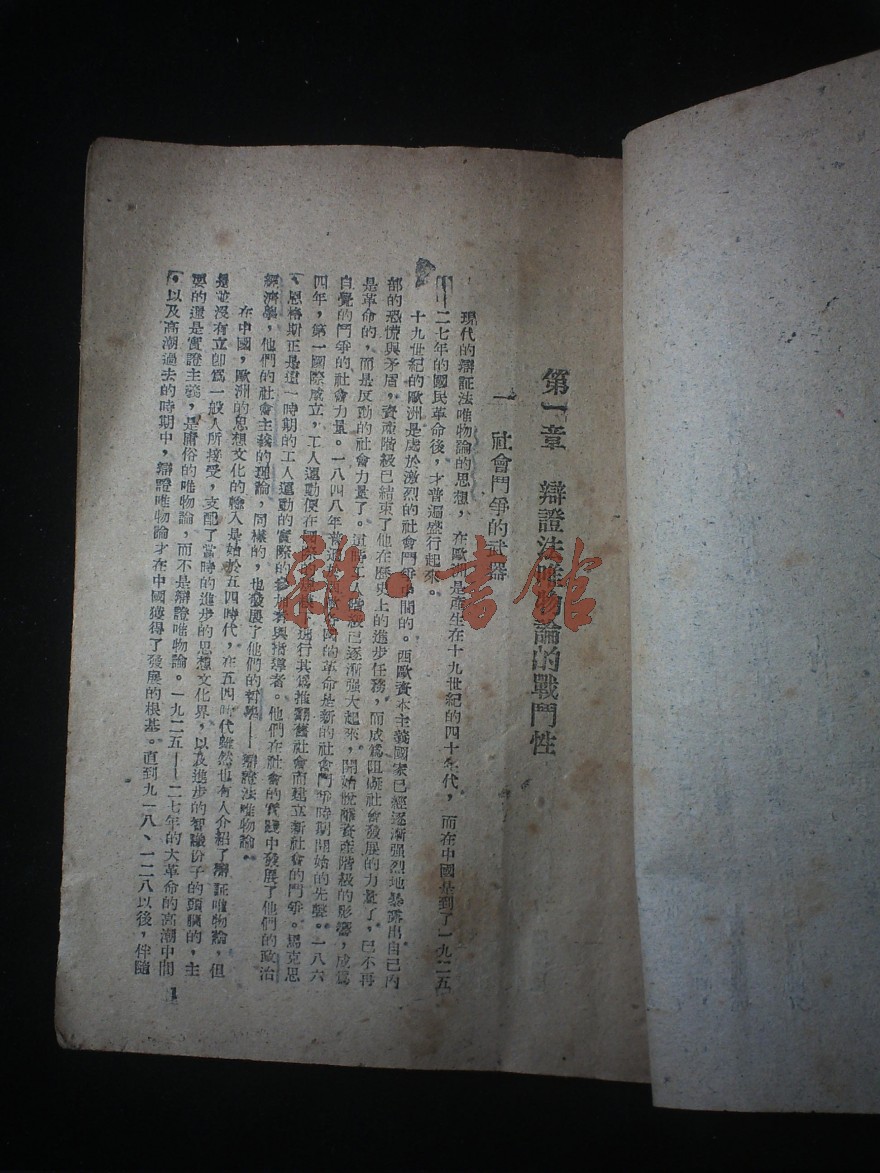 第一章 辯證法唯物論的戰鬥性
一 社會鬥爭的武器
現代的辯証法唯物論的思想，在歐洲是產生在十九世紀的四十年代，而在中國是到了一九二五
——二七年的國民革命後，才普遍盛行起來。
十九世紀的歐洲是處於激烈的社會鬥爭中間的。西歐資本主義國家已經逐漸强烈地暴露出自己內
部的恐慌與矛盾。資產階級已結束了他在歷史上的進步任務，而成爲阻礙社會發展的力量了，已不再
是革命的，而是反動的社會力量了。這時工人階級已逐漸强大起來，開始脫離資產階級的影響，成爲
自覺的鬥爭的社會力量。一八四八年普遍 的革命是新的社會鬥爭時期開始的先聲。一八六
四年，第一國際成立，工人運動便在國際 進行其爲推翻舊社會而建立新社會的鬥爭。馬克思
，恩格斯正是這一時期的工人運動的實際的參加者與指導者。他們在社會的實踐中發展了他們的政治
經濟學，他們的社會主義的理論，同樣的，也發展了他們的哲學——辯證法唯物論。
在中國，歐洲的思想文化的輸入是始於五四時代，在五四時代雖然也有人介紹了辯証唯物論，但
是並沒有立卽爲一般人所接受，支配了當時的進步的思想文化界，以及進步的智識份子的頭腦的，主
要的還是實證主義，是庸俗的唯物論，而不是辯證唯物論。一九二五——二七年的大革命的高潮中間
，以及高潮過去的時期中，辯證唯物論才在中國獲得了發展的根基。直到九一八、一二八以後，伴隨
1
雜·書館